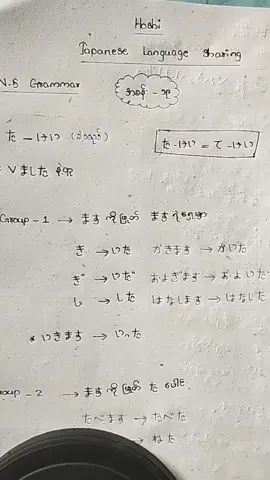 Hoshi
Japanese Language Sharing
N-5 Grammar
သင်ခန်းစာ -
た - けい
た-けい = て-けい
= Vました
Group - 1 → ます ကိုဖြုတ် ます
き → いた かきます → かいた
ぎ → いだ およぎます → およいだ
し → した はなします → はなした
* いきます → いった
Group - 2 → ます ကိုဖြုတ် た ပေါင်း
たべます → たべた
→ ねた